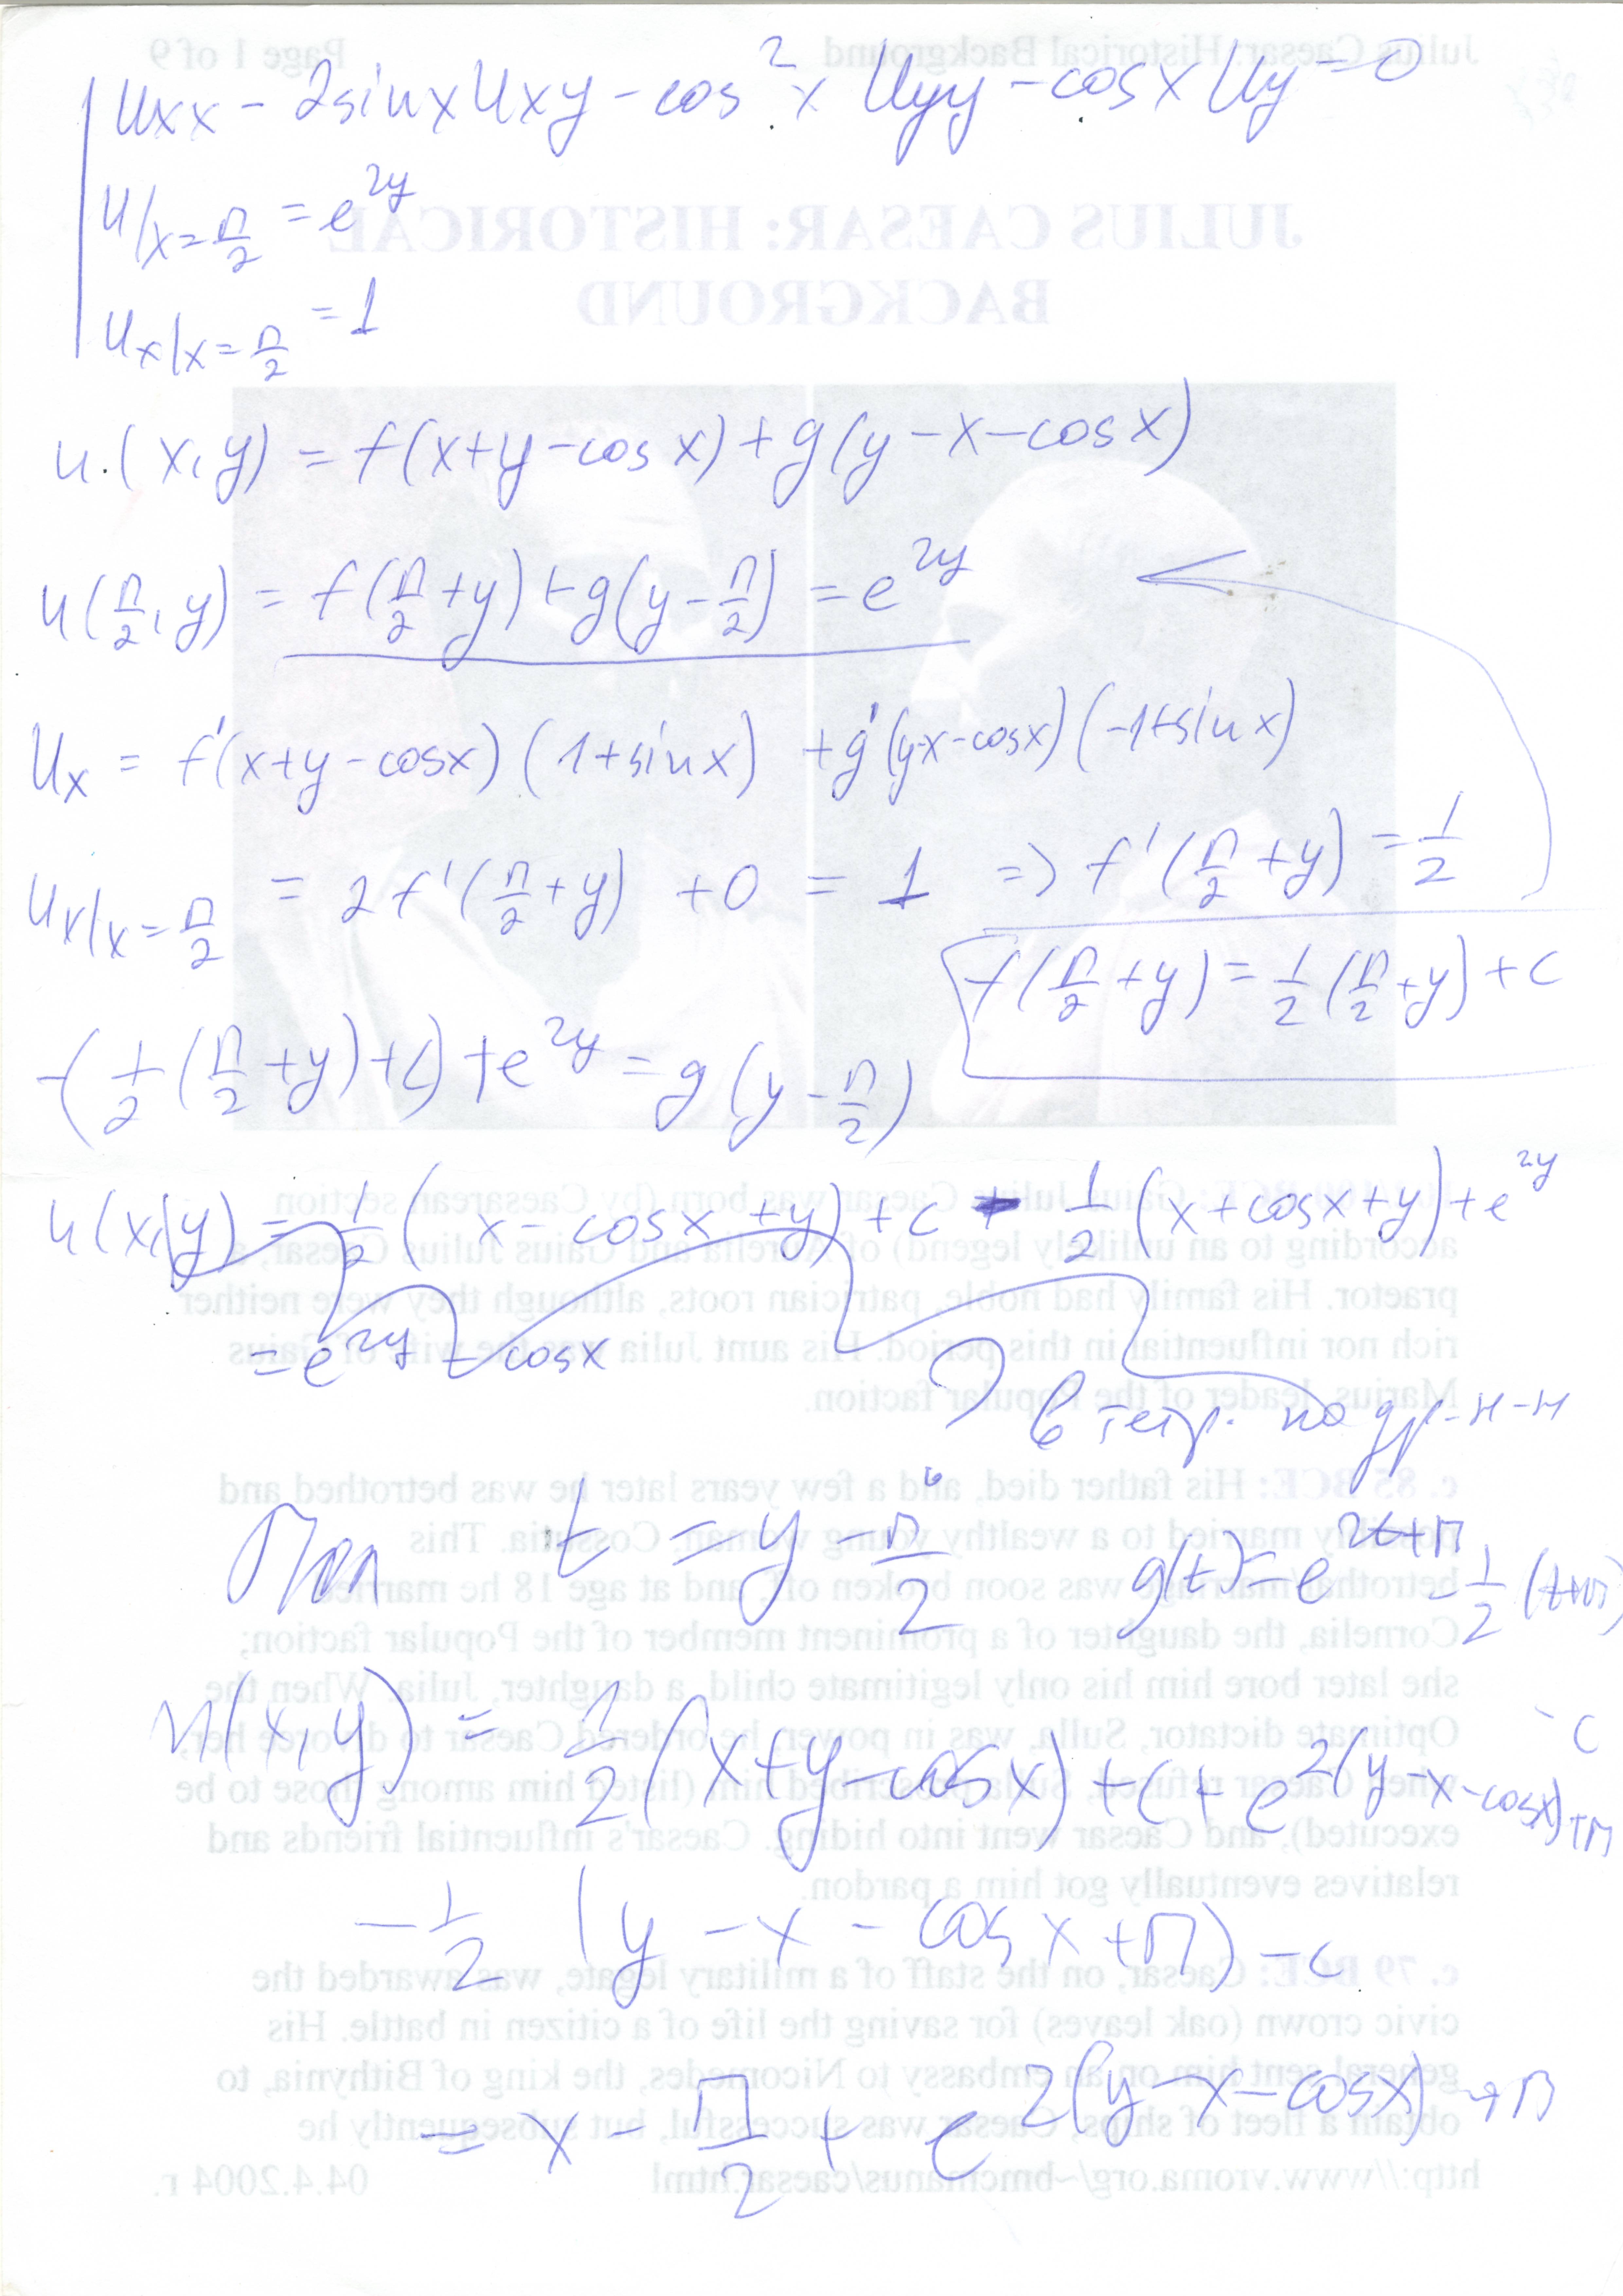 u_xx - 2sinx u_xy - cos²x u_yy - cosx u_y = 0
u|x=π/2 = e^2y
u_x|x=π/2 = 1
u(x,y) = f(x+y-cosx) + g(y-x-cosx)
u(π/2, y) = f(π/2+y) + g(y-π/2) = e^2y
u_x = f'(x+y-cosx)(1+sinx) + g'(y-x-cosx)(-1+sinx)
u_x|x=π/2 = 2f'(π/2+y) + 0 = 1 => f'(π/2+y) = 1/2
f(π/2+y) = 1/2(π/2+y)+c
-(1/2(π/2+y)+c)+e^2y = g(y-π/2)
u(x,y) = 1/2(x-cosx+y)+c - 1/2(x+cosx+y)+e^2y
= e^2y - cosx
в тетр. по др. н-н
t = y - π/2 g(t) = e^2t+π - 1/2(t+π) - c
u(x,y) = 1/2(x+y-cosx)+c+e^2(y-x-cosx)+π
-1/2(y-x-cosx+π)-c
= x - π/2 + e^2(y-x-cosx)+π
Julius Caesar: Historical Background
Page 1 of 9
JULIUS CAESAR: HISTORICAL
BACKGROUND
Gaius Julius Caesar was born (by Caesarean section
according to an unlikely legend) of Aurelia and Gaius Julius Caesar, a
praetor. His family had noble, patrician roots, although they were neither
rich nor influential in this period. His aunt Julia was the wife of Gaius
Marius, leader of the Popular faction.
c. 85 BCE: His father died, and a few years later he was betrothed and
possibly married to a wealthy young woman, Cossutia. This
betrothal/marriage was soon broken off, and at age 18 he married
Cornelia, the daughter of a prominent member of the Popular faction;
she later bore him his only legitimate child, a daughter, Julia. When the
Optimate dictator, Sulla, was in power, he ordered Caesar to divorce her;
when Caesar refused, Sulla proscribed him (listed him among those to be
executed), and Caesar went into hiding. Caesar's influential friends and
relatives eventually got him a pardon.
c. 79 BCE: Caesar, on the staff of a military legate, was awarded the
civic crown (oak leaves) for saving the life of a citizen in battle. His
general sent him on an embassy to Nicomedes, the king of Bithynia, to
obtain a fleet of ships; Caesar was successful, but subsequently he
http://www.vroma.org/~bmcmanus/caesar.html
04.4.2004 г.